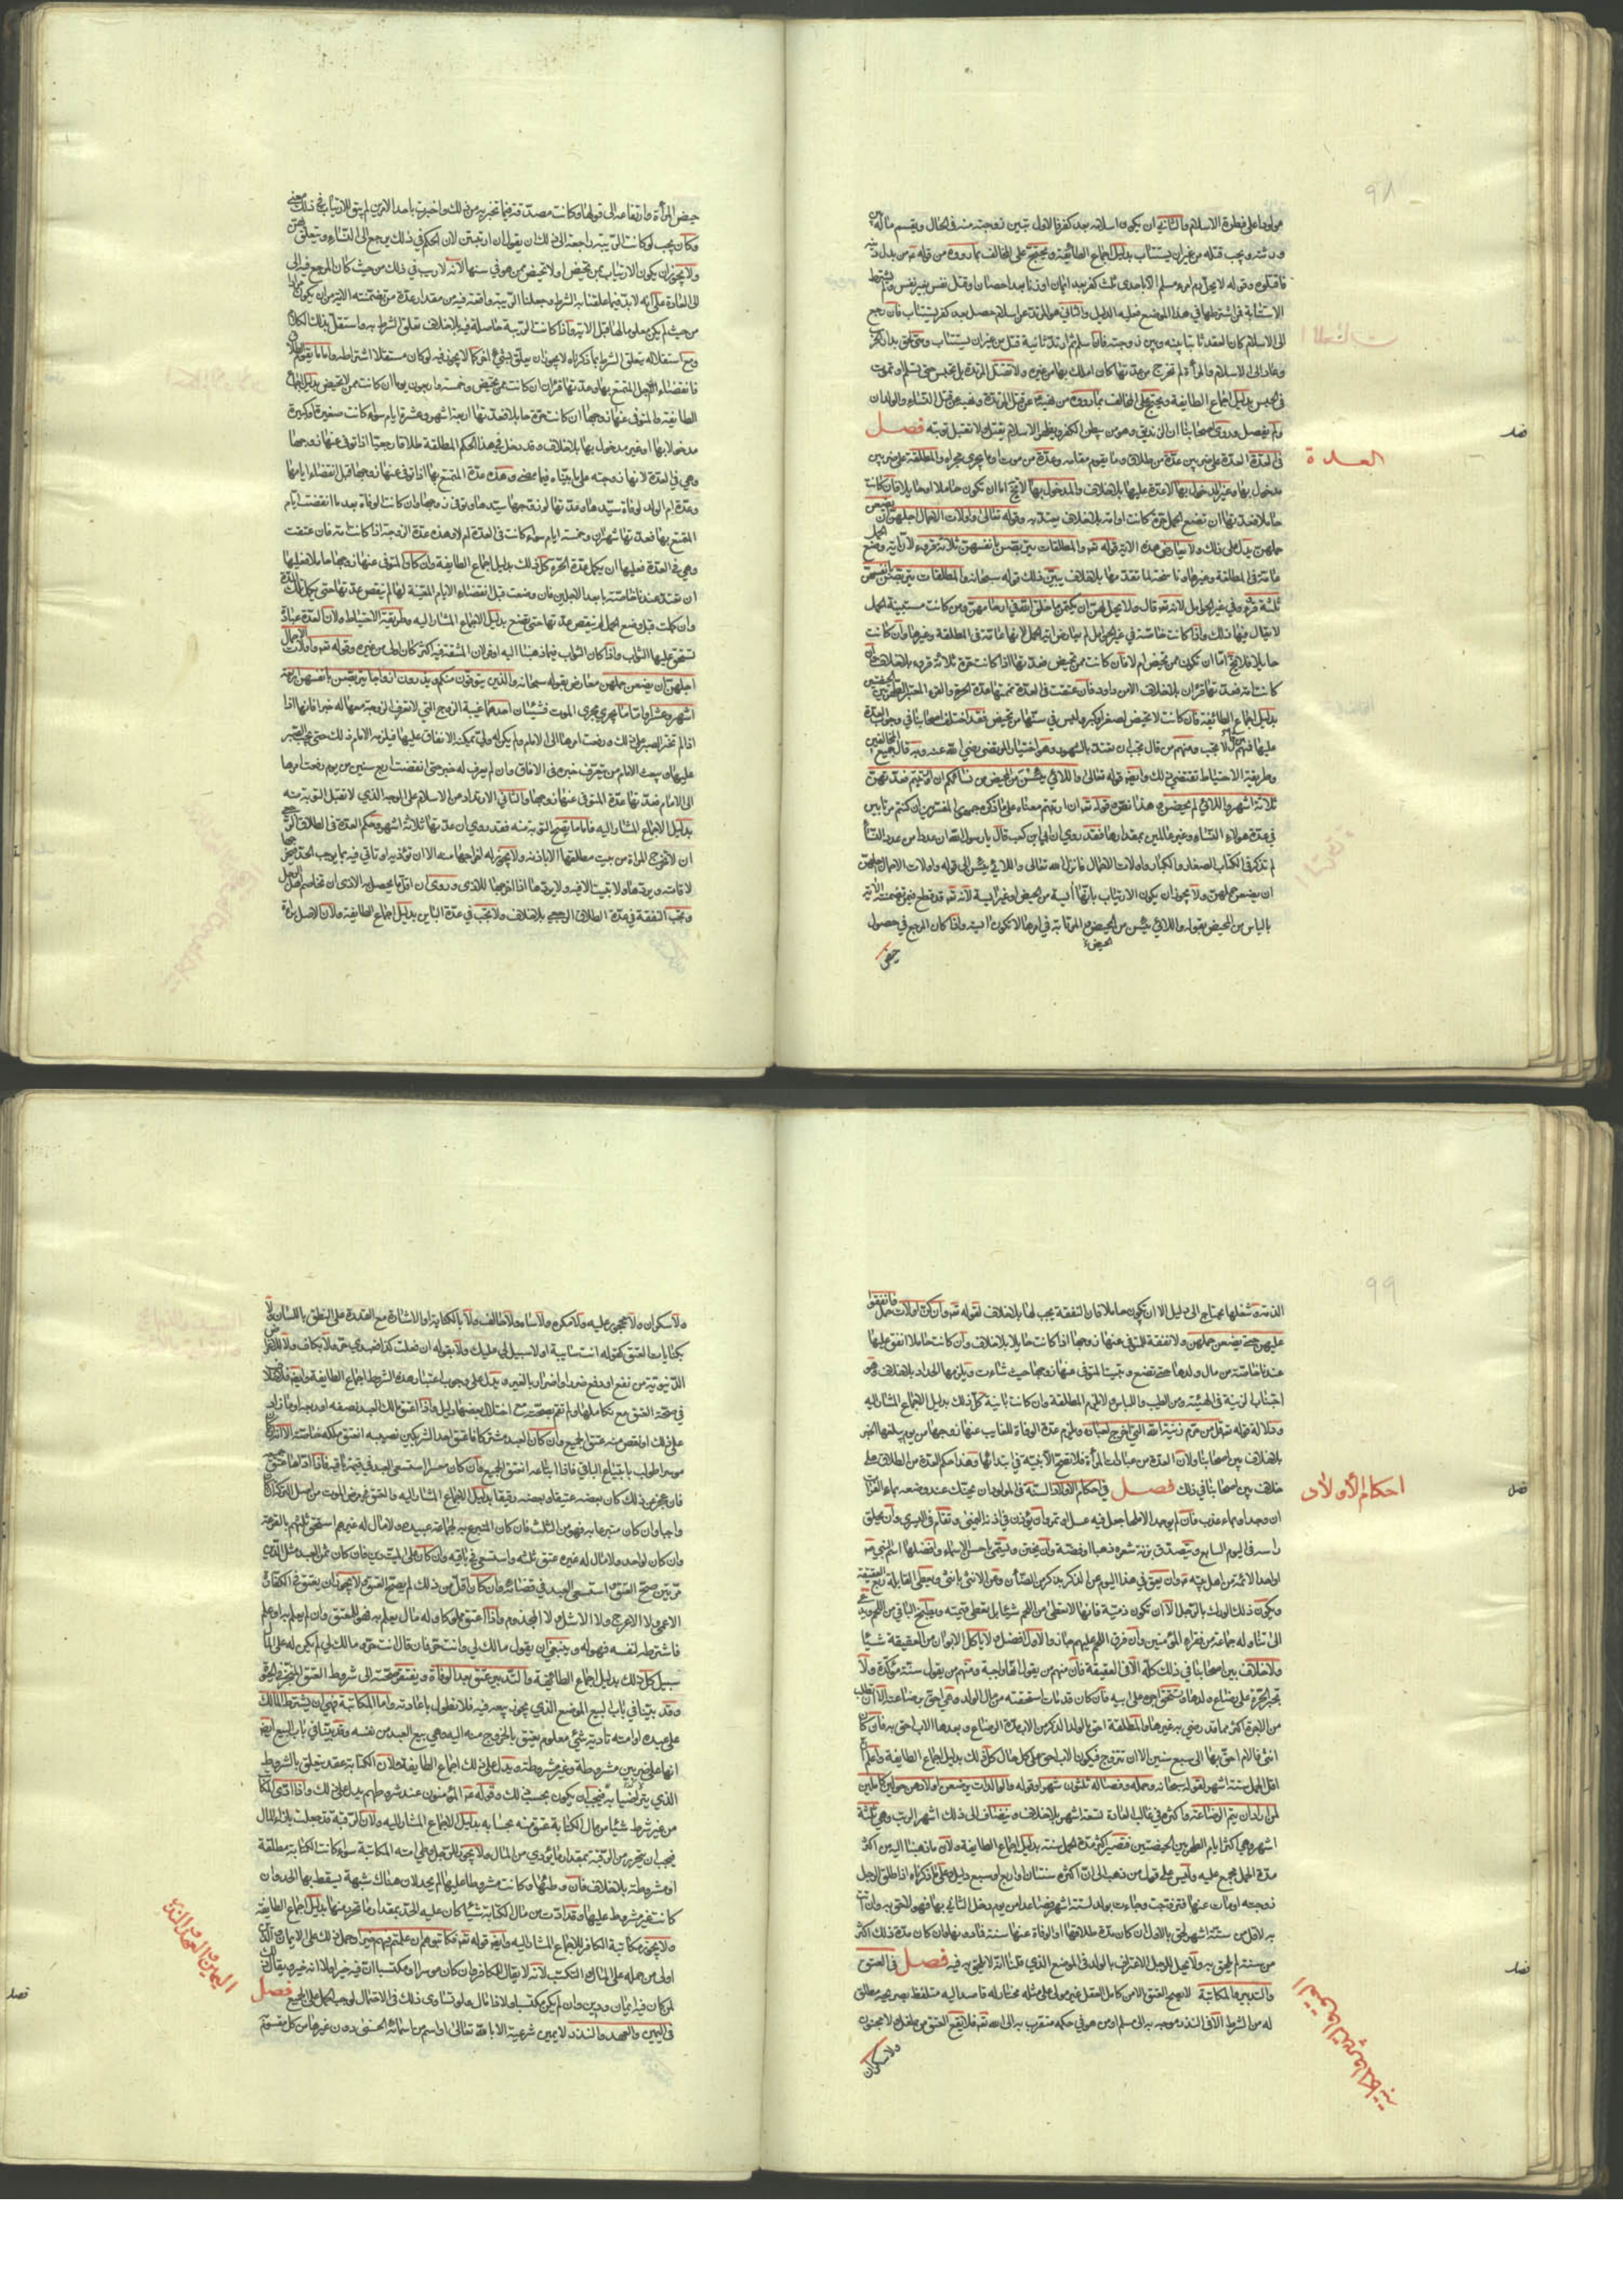 ٩٨
مولودا على فطرة الاسلام والثاني ان يكون اسلامه بعد كفر فالاول تبين زوجته منه في الحال ويقسم ماله بين
ورثته ويجب قتله من غير ان يستتاب بدليل اجماع الطائفة ويحتج على المخالف بما رووه من قوله من بدل دينه
فاقتلوه وقوله لا يحل دم امرء مسلم الا باحدى ثلث كفر بعد ايمان او زنا بعد احصان او قتل نفس بغير نفس ولم يشترط
الاستتابة فمن اشترطها في هذا الموضع فعليه الدليل والثاني هو المرتد عن اسلام حصل بعد كفر يستتاب فان رجع
الى الاسلام كان العقد ثابتا بينه وبين زوجته فان اسلم ثم ارتد ثانية قتل من غير ان يستتاب ومتى لحق بدار الكفر
وعاد الى الاسلام والمرأة لم تخرج من عدتها كان املك بها من غيره ولا تقتل المرتدة بل تحبس حتى تسلم او تموت
في الحبس بدليل اجماع الطايفة ويحتج على المخالف بما رووه من نهيه عن قتل المرتدة ونهيه عن قتل النساء والولدان
ولم يفصل وروى اصحابنا ان الزنديق وهو من يبطن الكفر ويظهر الاسلام يقتل لا تقبل توبته فصل
العدة
في العدة العدة على ضربين عدة من طلاق وما يقوم مقامه وعدة من موت وما يجري مجراه والمطلقة على ضربين
مدخول بها وغير المدخول بها لا عدة عليها بلا خلاف والمدخول بها لا تخلو اما ان تكون حاملا او حايلا فان كانت
حاملا فعدتها ان تضع الحمل حرة كانت او امة بلا خلاف يعتد به وقوله تعالى واولات الاحمال اجلهن ان يضعن
حملهن يدل على ذلك ولا يعارض هذه الاية قوله تع والمطلقات يتربصن بانفسهن ثلاثة قروء لان اية وضع الحمل
عامة في المطلقة وغيرها وناسخة لما تقدمها بلا خلاف يبين ذلك قوله سبحانه والمطلقات يتربصن بانفسهن
ثلثة قروء في غير الحوامل لانه تع قال ولا يحل لهن ان يكتمن ما خلق الله في ارحامهن ومن كانت مستبينة الحمل
لا يقال فيها ذلك واذا كانت خاصة في غير الحوامل لم يعارض اية الحمل لانها عامة في المطلقة وغيرها وان كانت
حايلا فلا تخلو اما ان تكون ممن تحيض ام لا فان كانت ممن تحيض فعدتها اذا كانت حرة ثلاثة قروء بلا خلاف وان
كانت امة فعدتها قرءان بلا خلاف الا من داود فان عتقت في العدة تممتها عدة الحرة والقرء المعتبر الطهر بين الحيضتين
بدليل اجماع الطائفة فان كانت لا تحيض لصغر او كبر وليس في سنها من تحيض فقد اختلف اصحابنا في وجوب العدة
عليها فمنهم من قال لا تجب ومنهم من قال تجب ان تعتد بالشهور وهو اختيار المرتضى رضي الله عنه وبه قال جميع المخالفين
وطريقة الاحتياط تقتضي ذلك وايضا قوله تعالى واللائي يئسن من المحيض من نسائكم ان ارتبتم فعدتهن
ثلاثة اشهر واللائي لم يحضن وهذا نص وقوله تع ان ارتبتم معناه على ما ذكره جمهور المفسرين ان كنتم مرتابين
في عدة هولاء النساء وغير عالمين بمقدارها فقد روي ان ابي بن كعب قال يا رسول الله ان عددا من عدد النساء
لم تذكر في الكتاب الصغار والكبار واولات الاحمال فانزل الله تعالى واللائي يئسن الى قوله واولات الاحمال اجلهن
ان يضعن حملهن ولا يجوز ان يكون الارتياب بانها آيسة من المحيض او غير آيسة لانه تع قد قطع فيمن تضمنته الاية
بالياس من المحيض بقوله واللائي يئسن من المحيض والمرتابة في امرها لا تكون آيسة واذا كان المرجع في حصول
حيض
حيض المرأة وارتفاعه الى قولها وكانت مصدقة فيما تخبر به من ذلك واخبرت باحد الامرين لم يبق للارتياب في ذلك معنى
وكان يجب لو كانت الريبة راجعة الى ذلك ان يقول ان ارتبن لان الحكم في ذلك يرجع الى النساء ويتعلق بهن
ولا يجوز ان يكون الارتياب بمن تحيض او لا تحيض ممن هو في سنها لانه لا ريب في ذلك من حيث كان المرجع فيه الى
الى العادة على انه لا بد فيما علقنا به الشرط وجعلنا الريبة واقعة فيه من مقدار عدة من تضمنته الاية من ان يكون مرادا
من حيث لم يكن معلوما لنا قبل الاية فاذا كانت الريبة حاصلة فيه بلا خلاف تعلق الشرط به واستقل بذلك الكلام
ومع استقلاله يتعلق الشرط بما ذكرناه لا يجوز ان يعلق بشيء اخر كما لا يجوز فيه لو كان مستقلا اشتراطه واما ما يقوم مقام الطلاق
فانقضاء اجل المتمتع بها وعدتها قرءان ان كانت ممن تحيض وخمسة واربعون يوما ان كانت ممن لا تحيض بدليل اجماع
الطايفة والمتوفى عنها زوجها ان كانت حرة حايلا فعدتها اربعة اشهر وعشرة ايام سواء كانت صغيرة او كبيرة
مدخولا بها او غير مدخول بها بلا خلاف وقد دخل في هذا الحكم المطلقة طلاقا رجعيا اذا توفي عنها زوجها
وهي في العدة لانها زوجته على ما بيناه فيما مضى وهذه عدة المتمتع بها اذا توفي عنها زوجها قبل انقضاء ايامها
وعدة ام الولد لوفاة سيدها وعدتها لو زوجها سيدها وتوفي زوجها وان كانت الوفاة بعد ما انقضت ايام
المتمتع بها فعدتها شهران وخمسة ايام سواء كانت في العدة ام لا وهذه عدة الزوجة اذا كانت امة فان عتقت
وهي في العدة فعليها ان يكمل عدة الحرة كل ذلك بدليل اجماع الطايفة وان كان المتوفى عنها زوجها حاملا فعليها
ان تعتد عندنا خاصة بابعد الاجلين فان وضعت قبل انقضاء الايام المعينة لها لم ينقض عدتها حتى يكمل تلك المدة
وان كملت قبل وضع الحمل لم ينقض عدتها حتى تضع بدليل الاجماع المشار اليه وطريقة الاحتياط ولان العدة عبادة
تستحق عليها الثواب واذا كان الثواب فيما ذهبنا اليه اوفر لان المشقة فيه اكثر كان اولى من غيره وقوله تع واولات الاحمال
اجلهن ان يضعن حملهن معارض بقوله سبحانه والذين يتوفون منكم ويذرون ازواجا يتربصن بانفسهن اربعة
اشهر وعشرا واما ما يجري مجرى الموت فشيئان احدهما غيبة الزوج التي لا تعرف الزوجة معها له خبرا فانها اذا
اذا لم تختر الصبر على ذلك ورفعت امرها الى الامام ولم يكن له ولي يمكنه الانفاق عليها فيلزمه الامام ذلك حتى يجب الصبر
عليها بعث الامام من يتعرف خبره في الافاق وان لم يعرف له خبر حتى انقضت اربع سنين من يوم رفعت امرها
الى الامام فعدتها عدة المتوفى عنها زوجها والثاني الارتداد من الاسلام على الوجه الذي لا تقبل التوبة منه
بدليل الاجماع المشار اليه فاما ما يصح التوبة منه فقد روي ان عدتها ثلاثة اشهر وحكم العدة في الطلاق الرجعي
ان لا تخرج المراة من بيت مطلقها الا باذنه ولا يجوز له اخراجها منه الا ان تؤذيه او تاتي فيه بما يوجب الحد فيخرجها
لاقامته ويردها ولا تبيت الا فيه ولا يردها اذا اخرجها للاذى وروي ان اقل ما يحصل به الاذى ان تخاصم اهل الرجل
وتجب النفقة في عدة الطلاق الرجعي بلا خلاف ولا تجب في عدة الباين بدليل اجماع الطايفة ولان الاصل براءة
٩٩
الذمة وشغلها يحتاج الى دليل الا ان تكون حاملا فان النفقة يجب لها بلا خلاف لقوله تع وان كن اولات حمل فانفقوا
عليهن حتى يضعن حملهن ولا نفقة للمتوفى عنها زوجها اذا كانت حايلا بلا خلاف وان كانت حاملا انفق عليها
عندنا خاصة من مال ولدها حتى تضع وتبيت المتوفى عنها زوجها حيث شاءت ويلزمها الحداد بلا خلاف وهو
اجتناب الزينة في الهيئة ومس الطيب واللباس ولا يلزم المطلقة وان كانت باينة كل ذلك بدليل الاجماع المشار اليه
ودلالة قوله تع قل من حرم زينة الله التي اخرج لعباده ويلزم عدة الوفاة للغايب عنها زوجها من يوم يبلغها الخبر
بلا خلاف بين اصحابنا ولان العدة من عبادات المرأة فلا تصح الا بنية في ابتدائها وهذا حكم العدة من الطلاق على
احكام الأولاد
خلاف بين اصحابنا في ذلك فصل في احكام الاولاد السنة في المولود ان يحنك عند وضعه بماء الفرات
ان وجد او بماء عذب فان لم يوجد الا ملحا جعل فيه عسل او تمر وان يؤذن في اذنه اليمنى وتقام في اليسرى وان يحلق
راسه في اليوم السابع ويتصدق بزنة شعره ذهبا او فضة وان يختن ويسمى باحسن الاسماء وافضلها اسم النبي
او احد الائمة من اهل بيته وان يعق في هذا اليوم عن الذكر بذكر من الضأن وعن الانثى بانثى ويعطى القابلة ربع العقيقة
ويكون ذلك الورك بالرجل الا ان تكون ذمية فانها لا تعطى من اللحم شيئا بل يعطى قيمته ويطبخ الباقي من اللحم ويدعى
الى تناوله جماعة من فقراء المؤمنين وان فرق اللحم عليهم جاز والاول افضل ولا ياكل الابوان من العقيقة شيئا
ولا خلاف بين اصحابنا في ذلك كله الا في العقيقة فان منهم من يقول انها واجبة ومنهم من يقول سنة مؤكدة ولا
تجبر الحرة على رضاع ولدها وتستحق اجرة على ابيه فان كان قد مات استحقته من مال الولد وهي احق برضاعه الا ان تطلب
من الاجرة اكثر مما قد رضي به غيرها والمطلقة احق بالولد الذكر من الاب مدة الرضاع وبعدها الاب احق به فان كان
انثى فالام احق بها الى سبع سنين الا ان تتزوج فيكون الاب احق على كل حال كل ذلك بدليل اجماع الطايفة واعلم ان
اقل الحمل ستة اشهر لقوله سبحانه وحمله وفصاله ثلثون شهرا وقوله والوالدات يرضعن اولادهن حولين كاملين
لمن اراد ان يتم الرضاعة واكثره في غالب العادة تسعة اشهر بلا خلاف وينضاف الى ذلك اشهر الريب وهي ثلثة
اشهر وهي اكثر ايام الطهر بين الحيضتين فتصير اكثر مدة الحمل سنة بدليل اجماع الطايفة ولان ما ذهبنا اليه من اكثر
مدة الحمل مجمع عليه وليس على قول من ذهب الى ان اكثره سنتان او اربع او سبع دليل وعلى ما ذكرناه اذا طلق الرجل
زوجته او مات عنها فتزوجت وجاءت بولد لستة اشهر فصاعدا من يوم دخل الثاني بها فهو لاحق به وان اتت
به لاقل من ستة اشهر لحق بالاول ان كان مدة طلاقها او الوفاة عنها سنة فما دونها وان كان مدة ذلك اكثر
من سنة لم يلحق به ولا يحل للرجل الاعتراف بالولد في الموضع الذي قلنا انه لا يلحق به فيه فصل في العتق
والتدبير والمكاتبة لا يصح العتق الا من كامل العقل غير مولى على مثله مختار له قاصد اليه متلفظ بصريحه مطلق
له من الشرط الا في النذر موجه به الى مسلم او من هو في حكمه متقرب به الى الله تع فلا يقع العتق من طفل ولا مجنون
العتق والتدبير والمكاتبة
ولا سكران
ولا سكران ولا محجور عليه ولا مكره ولا ساه ولا حالف ولا بالكتابة او الاشارة مع القدرة على النطق باللسان ولا
بكنايات العتق كقوله انت سايبة او لا سبيل لي عليك ولا بقوله ان فعلت كذا فعبدي حر ولا بكافر ولا للاغراض
الدنيوية من نفع او دفع ضرر او اضرار بالغير ويدل على وجوب اعتبار هذه الشروط اجماع الطايفة وايضا فلا خلاف
في صحة العتق مع تكاملها ولم تقم بصحته مع اختلال بعضها دليل واذا اعتق مالك العبد نصفه او ربعه او ما زاد
على ذلك او نقص منه عتق الجميع وان كان العبد مشتركا فاعتق احد الشريكين نصيبه انعتق ملكه خاصة الا انه ان كان
موسرا طولب بابتياع الباقي فاذا ابتاعه انعتق الجميع وان كان معسرا استسعي العبد في قيمة باقيه فاذا اداها عتق جميعه
فان عجز عن ذلك كان بعضه عتيقا وبعضه رقيقا بدليل الاجماع المشار اليه والعتق في مرض الموت من اصل التركة ان كان
واجبا وان كان متبرعا به فهو من الثلث فان كان المتبرع به لجماعة عبيده ولا مال له غيرهم استحق ثلثهم بالقرعة
وان كان لواحد ولا مال له غيره عتق ثلثه واستسعي في باقيه وان كان على الميت دين فان كان ثمن العبد مثل الدين
مرتين صح العتق واستسعى العبد في قضائه وان كان اقل من ذلك لم يصح العتق ولا يجوز ان يعتق في الكفارة
الاعمى ولا الاعرج ولا الاشل ولا المجذوم واذا اعتق مملوكا وله مال يعلم به فهو للمعتق وان لم يعلم به او علم
فاشترطه لنفسه فهو له وينبغي ان يقول مالك لي وانت حر فان قال انت حر ومالك لي لم يكن له على المال
سبيل كل ذلك بدليل اجماع الطائفة والتدبير عتق بعد الوفاة ويفتقر صحته الى شروط العتق المنجز في الحياة
وقد بينا في باب البيع الموضع الذي يجوز بيعه فيه فلا نطول باعادته واما المكاتبة فهي ان يشترط المالك
على عبده او امته تادية شيء معلوم يعتق بالخروج منه اليه وهي بيع العبد من نفسه وقد بينا في باب البيع ايضا
انها على ضربين مشروطة وغير مشروطة ويدل على ذلك اجماع الطايفة ولان الكتابة عقد يتعلق بالشرط
الذي يتراضيا به فيجب ان يكون بحسب ذلك وقوله المؤمنون عند شروطهم يدل على ذلك واذا ادى المكاتب
من غير شرط شيئا من مال الكتابة عتق منه بحسابه بدليل الاجماع المشار اليه ولان الرقبة قد جعلت بازاء المال
فيجب ان يتحرر من الرقبة بمقدار ما يؤدي من المال ولا يجوز للرجل وطي امته المكاتبة سواء كانت الكتابة مطلقة
او مشروطة بلا خلاف فان وطئها وكانت مشروطا عليها لم يحد لان هناك شبهة يسقط بها الحد وان
كانت غير مشروط عليها وقد ادت من مال الكتابة شيئا كان عليه الحد بمقدار ما تحرر منها بدليل اجماع الطايفة
ولا يجوز مكاتبة الكافر للاجماع المشار اليه وايضا قوله تع فكاتبوهم ان علمتم فيهم خيرا وحمل ذلك على الايمان والدين
اولى من حمله على المال والتكسب لانه لا يقال للكافر وان كان موسرا او مكتسبا ان فيه خيرا ولا انه خير ويقال ذلك
لمن كان فيه ايمان ودين وان لم يكن مكتسبا ولا ذا مال ولو تساوى ذلك في الاحتمال لوجب الحمل على الجميع فصل
في اليمين والعهد والنذر لا يمين شرعية الا بالله تعالى او اسم من اسمائه الحسنى دون غيرها من كل مقسوم
اليمين والعهد والنذر